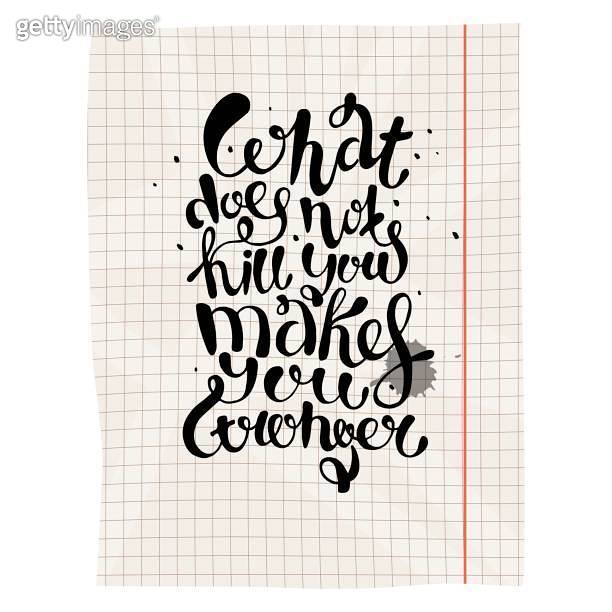 gettyimages®
What
does not
kill you
makes
you
stronger